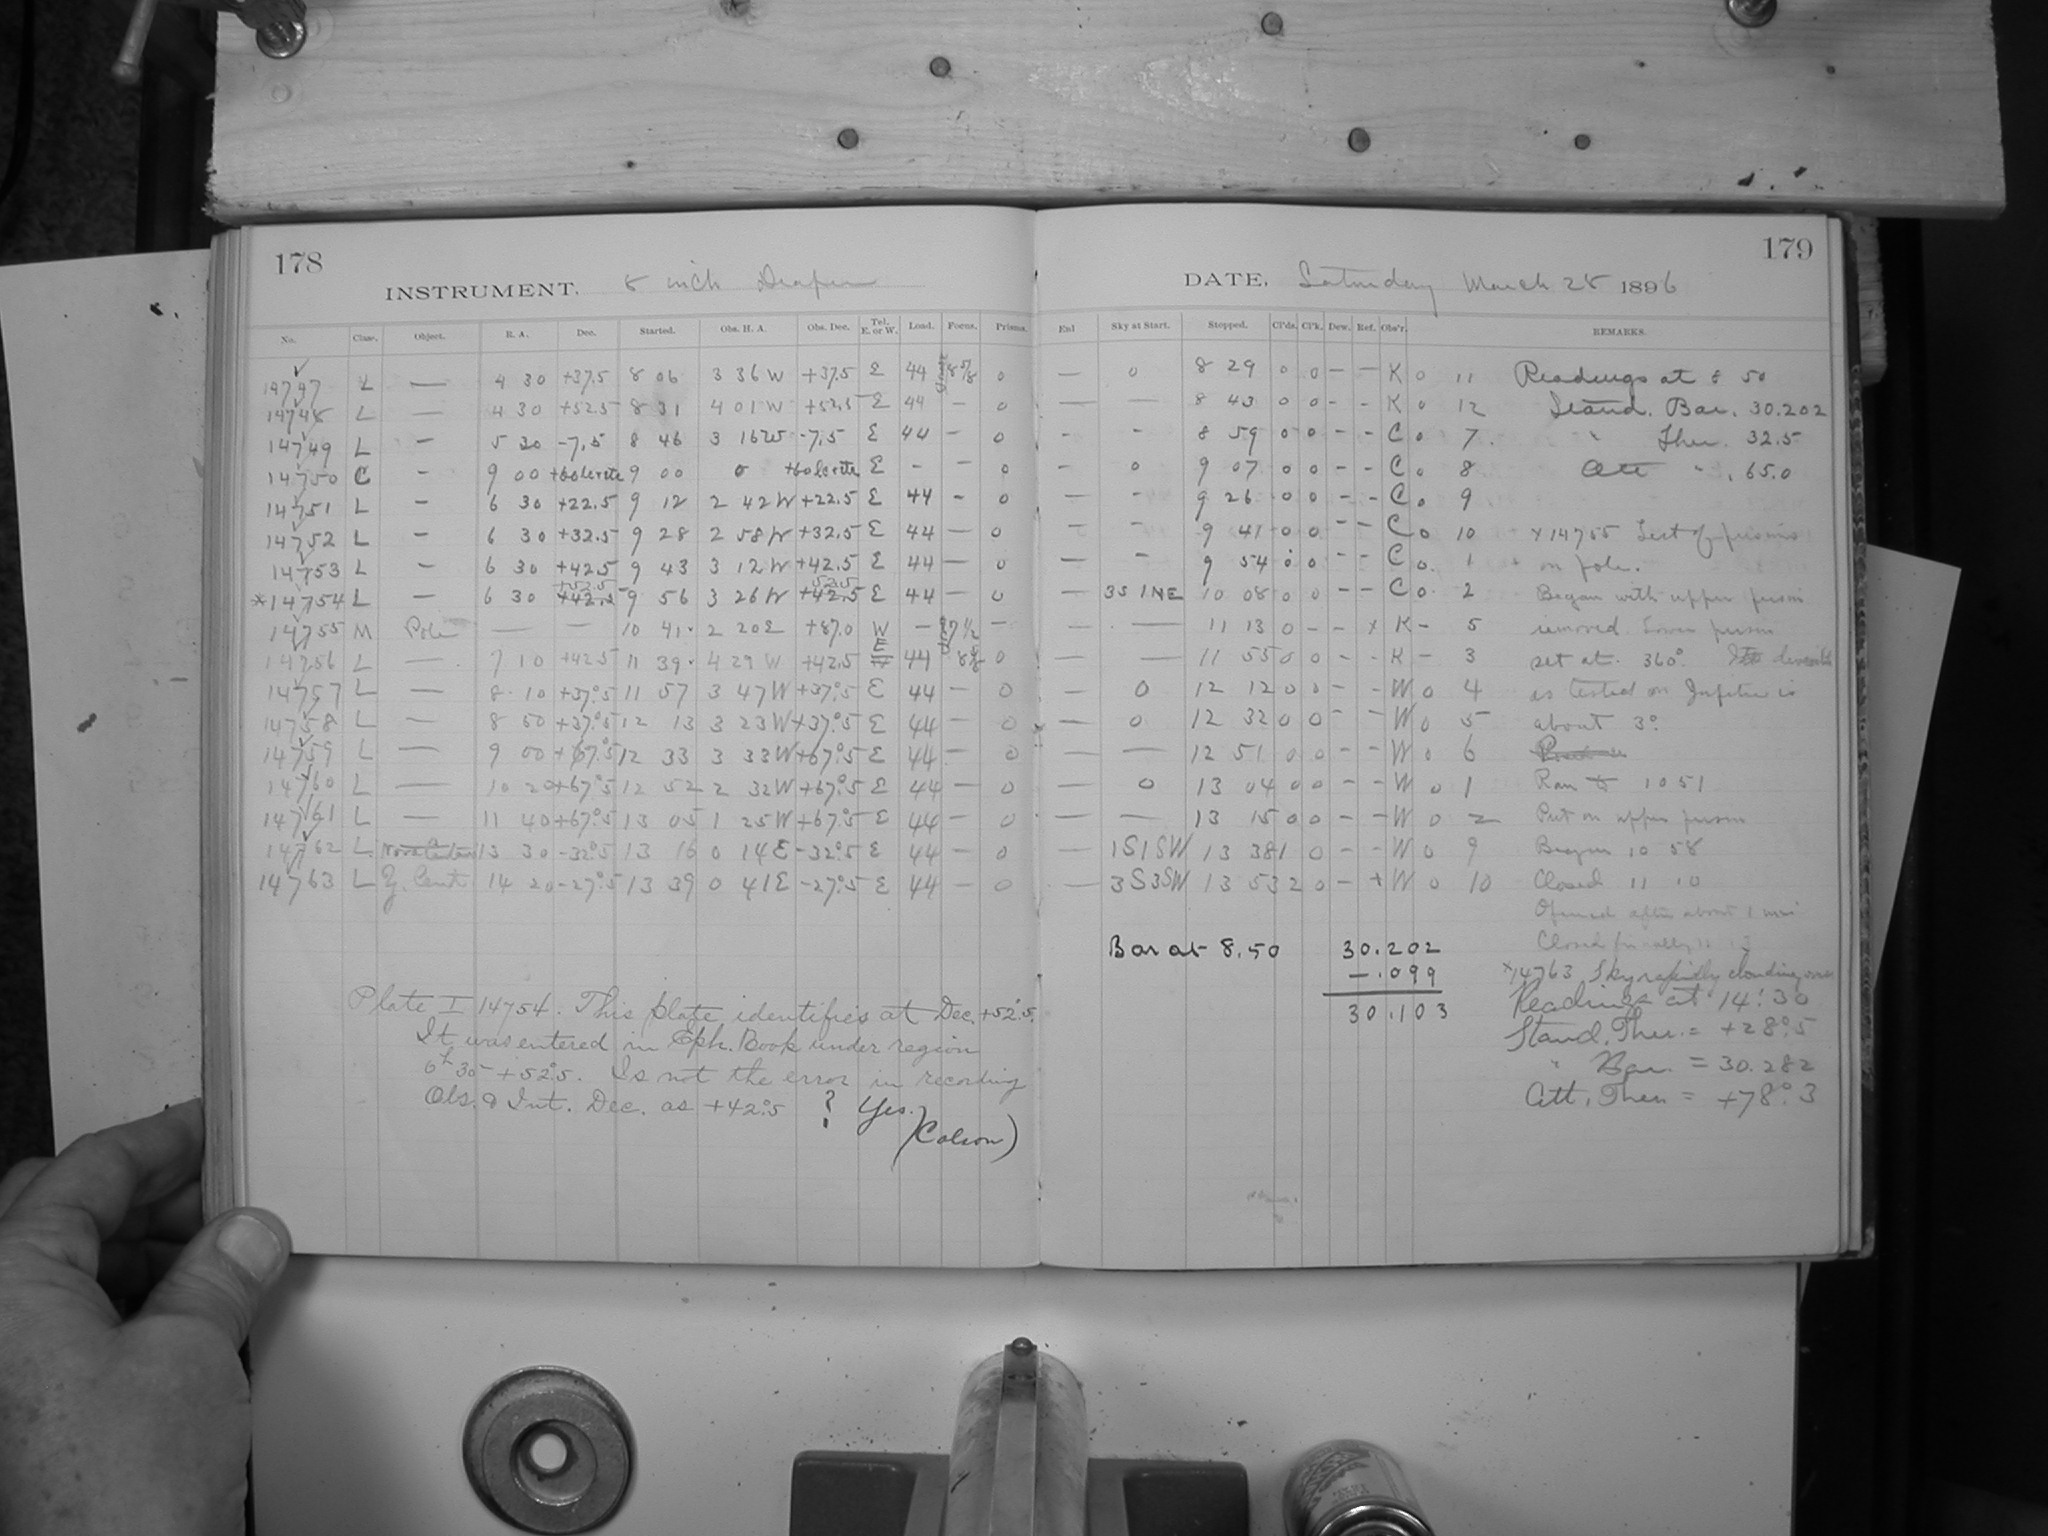 178
INSTRUMENT. 8 inch Draper
No. Class. Object. R. A. Dec. Started. Obs. H. A. Obs. Dec. Tel. E. or W. Load. Focus. Prisms.
14747 L — 4 30 +37.5 8 06 3 36 W +37.5 E 44 8 5/8 0
14748 L — 4 30 +52.5 8 31 4 01 W +52.5 E 44 — 0
14749 L — 5 30 -7.5 8 46 3 16 W -7.5 E 44 — 0
14750 C - 9 00 9 00 0 E - — 0
14751 L - 6 30 +22.5 9 12 2 42 W +22.5 E 44 - 0
14752 L - 6 30 +32.5 9 28 2 58 W +32.5 E 44 — 0
14753 L - 6 30 +42.5 9 43 3 12 W +42.5 E 44 — 0
+52.5 52.5
*14754 L - 6 30 +42.5 9 56 3 26 W +42.5 E 44 — 0
14755 M Pole — — 10 41 2 20 E +87.0 W — 7 1/2 —
14756 L — 7 10 +42.5 11 39 4 29 W +42.5 E 44 8 5/8 0
14757 L — 8 10 +37°.5 11 57 3 47 W +37°.5 E 44 — 0
14758 L — 8 50 +37°.5 12 13 3 23 W +37°.5 E 44 — 0
14759 L — 9 00 +67°.5 12 33 3 33 W +67°.5 E 44 — 0
14760 L — 10 20 +67°.5 12 52 2 32 W +67°.5 E 44 — 0
14761 L — 11 40 +67°.5 13 05 1 25 W +67°.5 E 44 — 0
14762 L 13 30 -32°.5 13 16 0 14 E -32°.5 E 44 — 0
14763 L Cent 14 20 -27°.5 13 39 0 41 E -27°.5 E 44 — 0
Plate I 14754. This plate identifies at Dec. +52°.5.
It was entered in Eph. Book under region
6h 30 +52°.5. Is not the error in recording
Obs. & Int. Dec. as +42°.5 ? Yes.
(Colson)
179
DATE, Saturday March 28 1896
End Sky at Start. Stopped. Cl'ds. Cl'k. Dew. Ref. Obs'r. REMARKS.
— 0 8 29 0 0 - - K 0 11 Readings at 8 50
— — 8 43 0 0 - - K 0 12 Stand. Bar. 30.202
- - 8 59 0 0 - - C 0 7. " Ther. 32.5
- 0 9 07 0 0 - - C 0 8 Att " . 65.0
— - 9 26 0 0 - - C 0 9
— - 9 41 0 0 - - C 0 10 x 14755 Test of prisms
— - 9 54 0 0 - - C 0. 1 on pole.
— 3S 1NE 10 08 0 0 - - C 0. 2 Began with upper prism
— — 11 13 0 - - x K - 5 removed. Lower prism
— — 11 55 0 0 - - K - 3 set at 360°.
— 0 12 12 0 0 - - W 0 4 as tested on Jupiter is
— 0 12 32 0 0 - - W 0 5 about 3°.
— — 12 51 0 0 - - W 0 6
— 0 13 04 0 0 - - W 0 1 Ran to 10 51
— — 13 15 0 0 - - W 0 2 Put on upper prism
— 1S1SW 13 38 1 0 - - W 0 9 Began 10 58
— 3S3SW 13 53 2 0 - + W 0 10 Closed 11 10
Opened after about 1 min
Closed finally 11 13
x14763 Sky rapidly clouding over
Bar at 8.50 30.202
-.099
30.103
Readings at 14:30
Stand. Ther. = +28°.5
" Bar. = 30.282
Att. Ther. = +78°.3